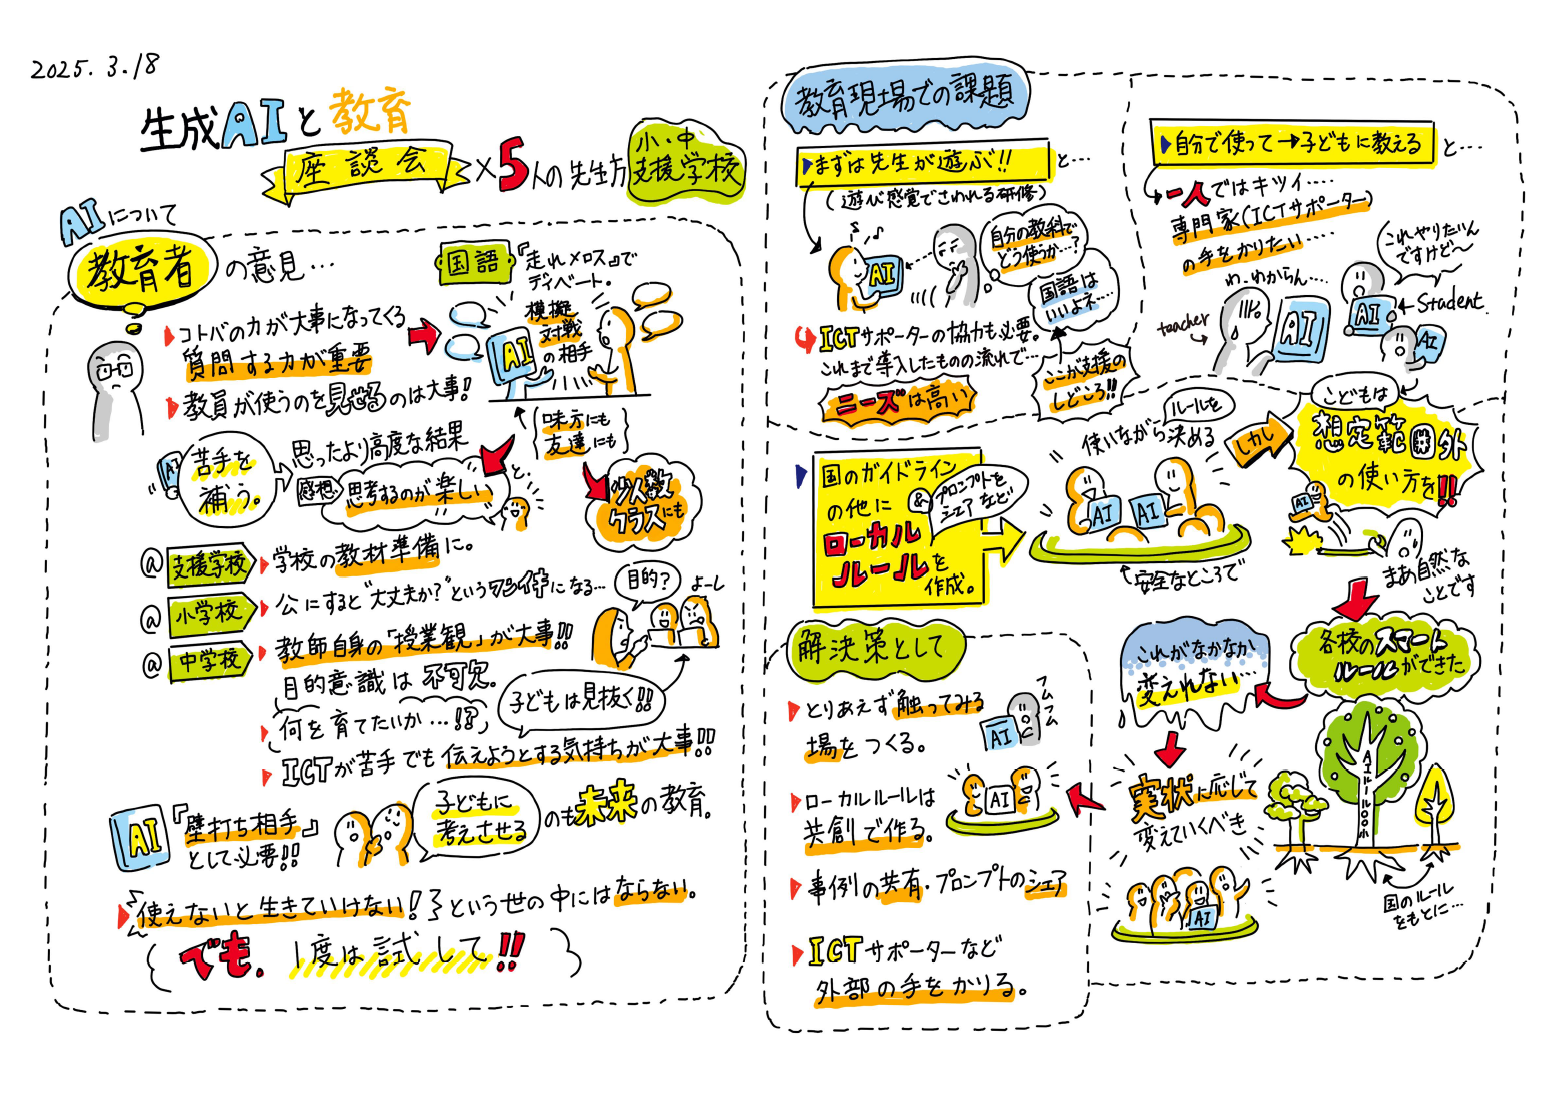 2025.3.18
生成AIと教育
座談会×5人の先生方
小、中
支援学校
AIについて
教育者の意見…
コトバの力が大事になってくる
質問する力が重要
教員が使うのを見せるのは大事!
国語『走れメロス』で
ディベート。
模擬
対戦
の相手
AI
味方にも
友達にも
少人数
クラスにも
AI
苦手を
補う。
思ったより高度な結果
感想
思考するのが楽しい
と、
@支援学校
学校の教材準備に。
@小学校
公にすると"大丈夫か?"という
になる…
@中学校
教師自身の「授業観」が大事!!
目的意識は不可欠。
目的?
よーし
子どもは見抜く!!
何を育てたいか…!?
ICTが苦手でも伝えようとする気持ちが大事!!
AI
『壁打ち相手』
として必要!!
子どもに
考えさせる
のも未来の教育。
使えないと生きていけない!という世の中にはならない。
でも、1度は試して!!
教育現場での課題
まずは先生が遊ぶ!!と…
(遊び感覚でさわれる研修)
AI
自分の教科で
どう使うか…?
国語は
いいよね…
ICTサポーターの協力も必要。
これまで導入したものの流れで…
ニーズは高い
ここが支援の
しどころ!!
自分で使って→子どもに教えると…
一人ではキツイ….
専門家(ICTサポーター)
の手をかりたい….
わ、わからん…
teacher
AI
これやりたいん
ですけど〜
AI
Student
AI
国のガイドライン
の他に
&
プロンプトを
シェアなど
ローカル
ルールを
作成。
使いながら決める
ルールを
AI
AI
安全なところで
しかし
こどもは
想定範囲外
の使い方を!!
AI
まあ自然な
ことです
各校のスマート
ルールができた
AIルール○○小
国のルール
をもとに…
これがなかなか
変えれない…
実状に応じて
変えていくべき
AI
解決策として
とりあえず触ってみる
場をつくる。
AI
フムフム
ローカルルールは
共創で作る。
AI
事例の共有・プロンプトのシェア
ICTサポーターなど
外部の手をかりる。